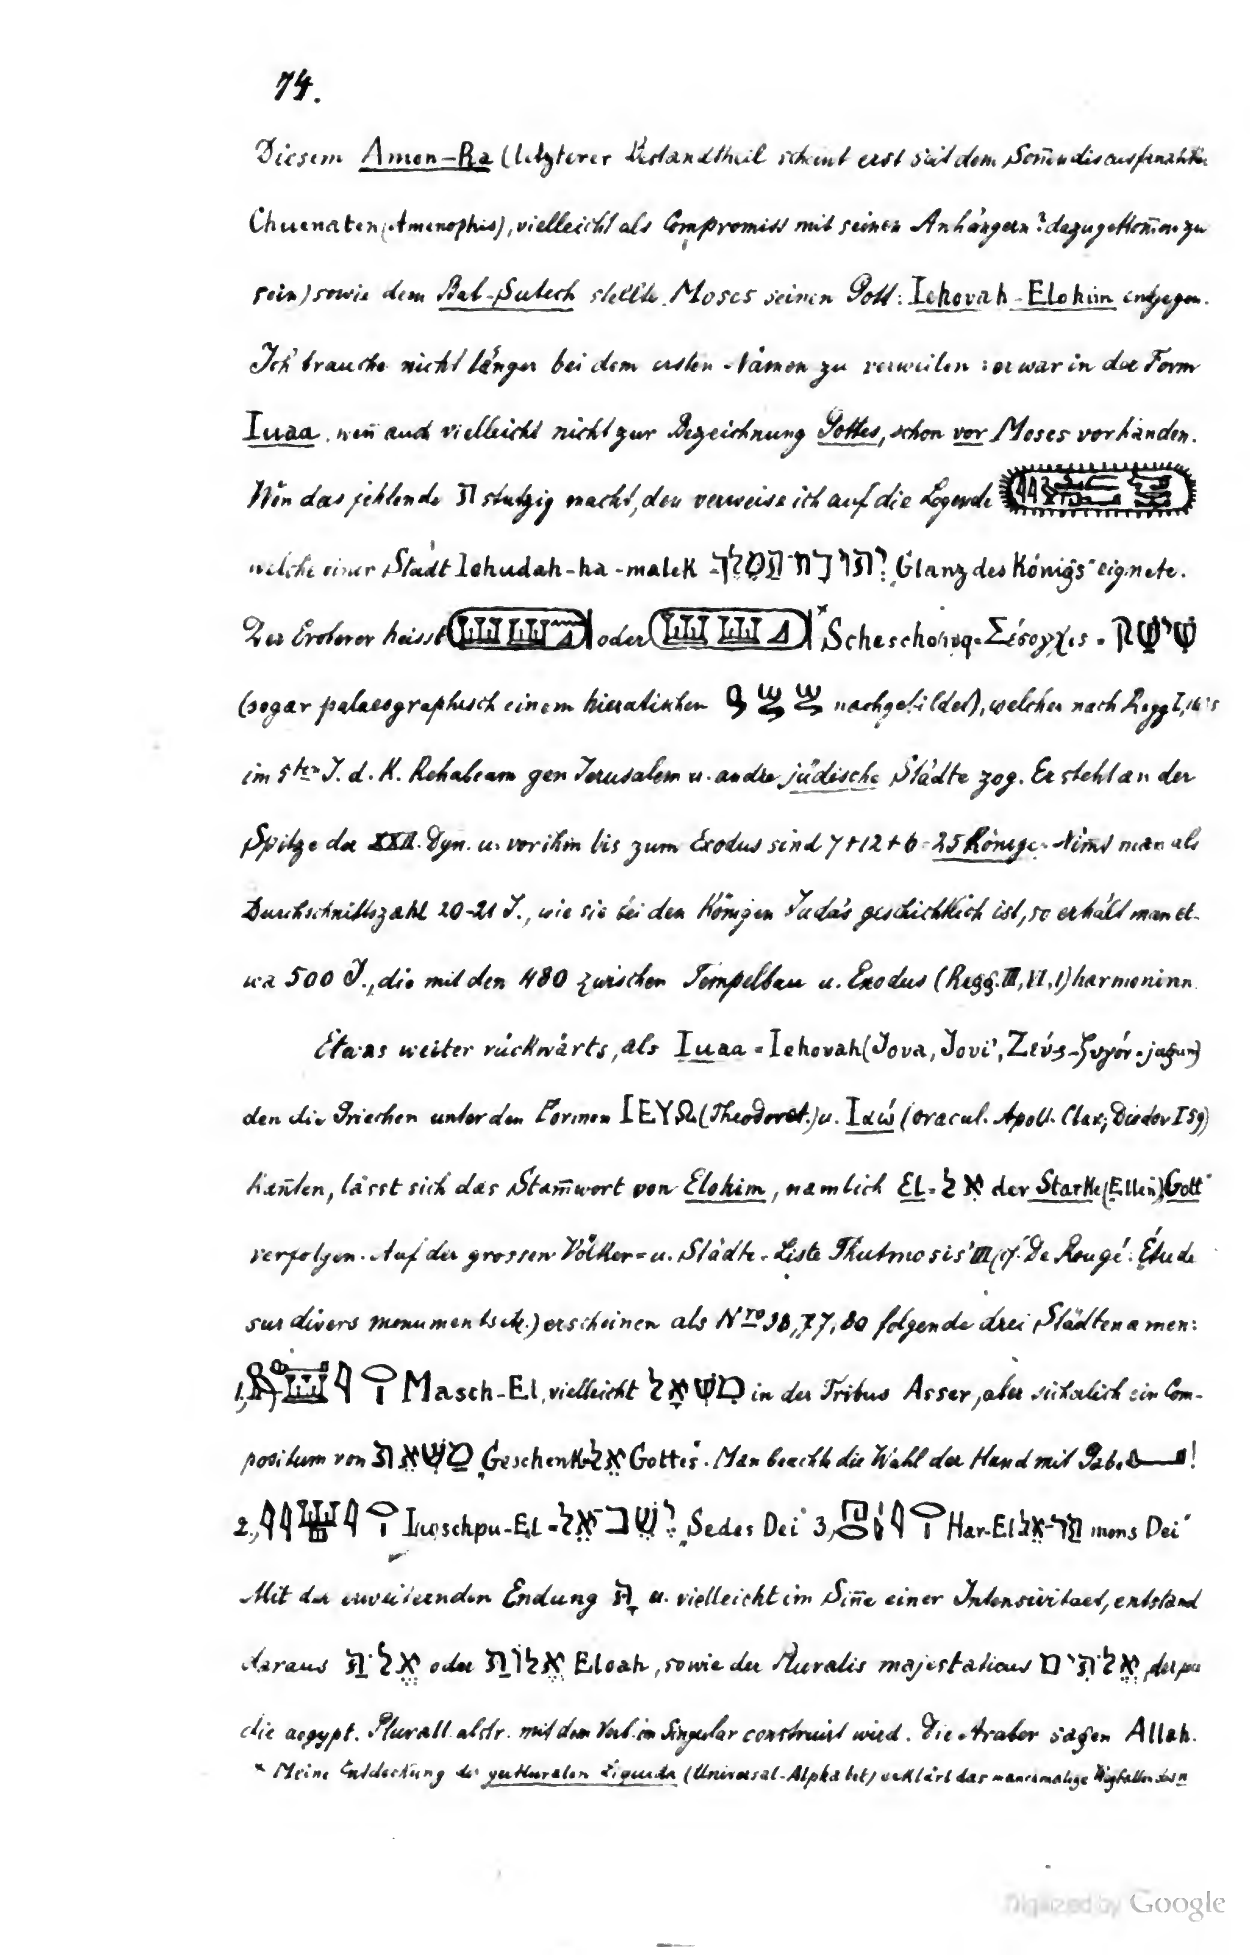 74.
Diesem Amon-Ra (letzterer Bestandtheil scheint erst seit dem Soñendiscusfanatiker
Chuenaten (Amenophis), vielleicht als Compromiss mit seinen Anhängern? dazugekom̃en zu
sein) sowie dem Bal-Sutech stellte Moses seinen Gott: Iehovah-Elohim entgegen.
Ich brauche nicht länger bei dem ersten Namen zu verweilen: er war in der Form
Iuaa, weñ auch vielleicht nicht zur Bezeichnung Gottes, schon vor Moses vorhanden.
Wen das fehlende ה stutzig macht, den verweise ich auf die Legende
welche einer Stadt Iehudah-ha-malek „Glanz des Königs“ eignete.
Der Eroberer heisst oder * Scheschonq = Σέσογχις = שישק
(sogar palaeographisch einem hieratischen nachgebildet), welcher nach Regg I,
im 5ten J. d. K. Rehabeam gen Jerusalem u. andre jüdische Städte zog. Er steht an der
Spitze der XXII. Dyn. u. vor ihm bis zum Exodus sind 7+12+6 = 25 Könige. Nim̃t man als
Durchschnittszahl 20-21 J., wie sie bei den Königen Juda's geschichtlich ist, so erhält man et-
wa 500 J., die mit den 480 zwischen Tempelbau u. Exodus (Regg. III, VI, 1) harmoniren.
Etwas weiter rückwärts, als Iuaa = Iehovah (Jova, Jovi, Ζεύς - ζυγόν = jugum)
den die Griechen unter den Formen ΙΕΥΩ (Theodoret.) u. Ιαώ (oracul. Apoll. Clar; Diodor I 59)
kañten, lässt sich das Stam̃wort von Elohim, nämlich EL = אל der Starke (Ellen) „Gott“
verfolgen. Auf der grossen Völker- u. Städte-Liste Thutmosis' III (cf. De Rougé: Étude
sur divers monuments etc.) erscheinen als Nro 38, 77, 80 folgende drei Städtenamen:
1, Masch-El, vielleicht משאל in der Tribus Asser, aber sicherlich ein Com-
positum von משאת „Geschenk“ אל Gottes. Man beachte die Wahl der Hand mit Gabe !
2., Iuoschpu-El = ישב־אל „Sedes Dei“ 3, Har-El הר־אל mons Dei“
Mit der erweiternden Endung ה u. vielleicht im Siñe einer Intensivitaet, entstand
daraus אלה oder אלוה Eloah, sowie der Pluralis majestaticus אלהים, der
die aegypt. Plurall. abstr. mit dem Verb. im Singular construirt wird. Die Araber sagen Allah.
* Meine Entdeckung der gutturalen Liquida (Universal-Alphabet) erklärt das manchmalige Wegfallen des n